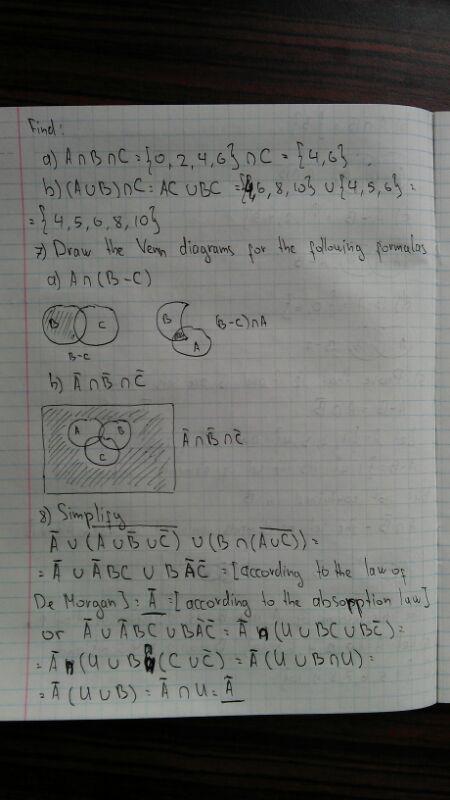 Find:
a) A∩B∩C = {0, 2, 4, 6} ∩ C = {4, 6}.
b) (A∪B)∩C = AC ∪ BC = {4, 6, 8, 10} ∪ {4, 5, 6} =
= {4, 5, 6, 8, 10}
7) Draw the Venn diagrams for the following formulas
a) A∩(B-C)
B C B A (B-C)∩A
B-C
b) Ā∩B̄∩C̄
A B C Ā∩B̄∩C̄
8) Simplify
Ā ∪ (\overline{A∪B̄∪C̄}) ∪ (B∩(\overline{A∪C̄})) =
= Ā ∪ ĀBC ∪ BĀC̄ = [according to the law of
De Morgan] = Ā = [according to the absorption law]
or Ā ∪ ĀBC ∪ BĀC̄ = Ā ∩ (U ∪ BC ∪ BC̄) =
= Ā ∩ (U ∪ B ∩ (C ∪ C̄) = Ā (U ∪ B ∩ U) =
= Ā (U ∪ B) = Ā ∩ U = Ā